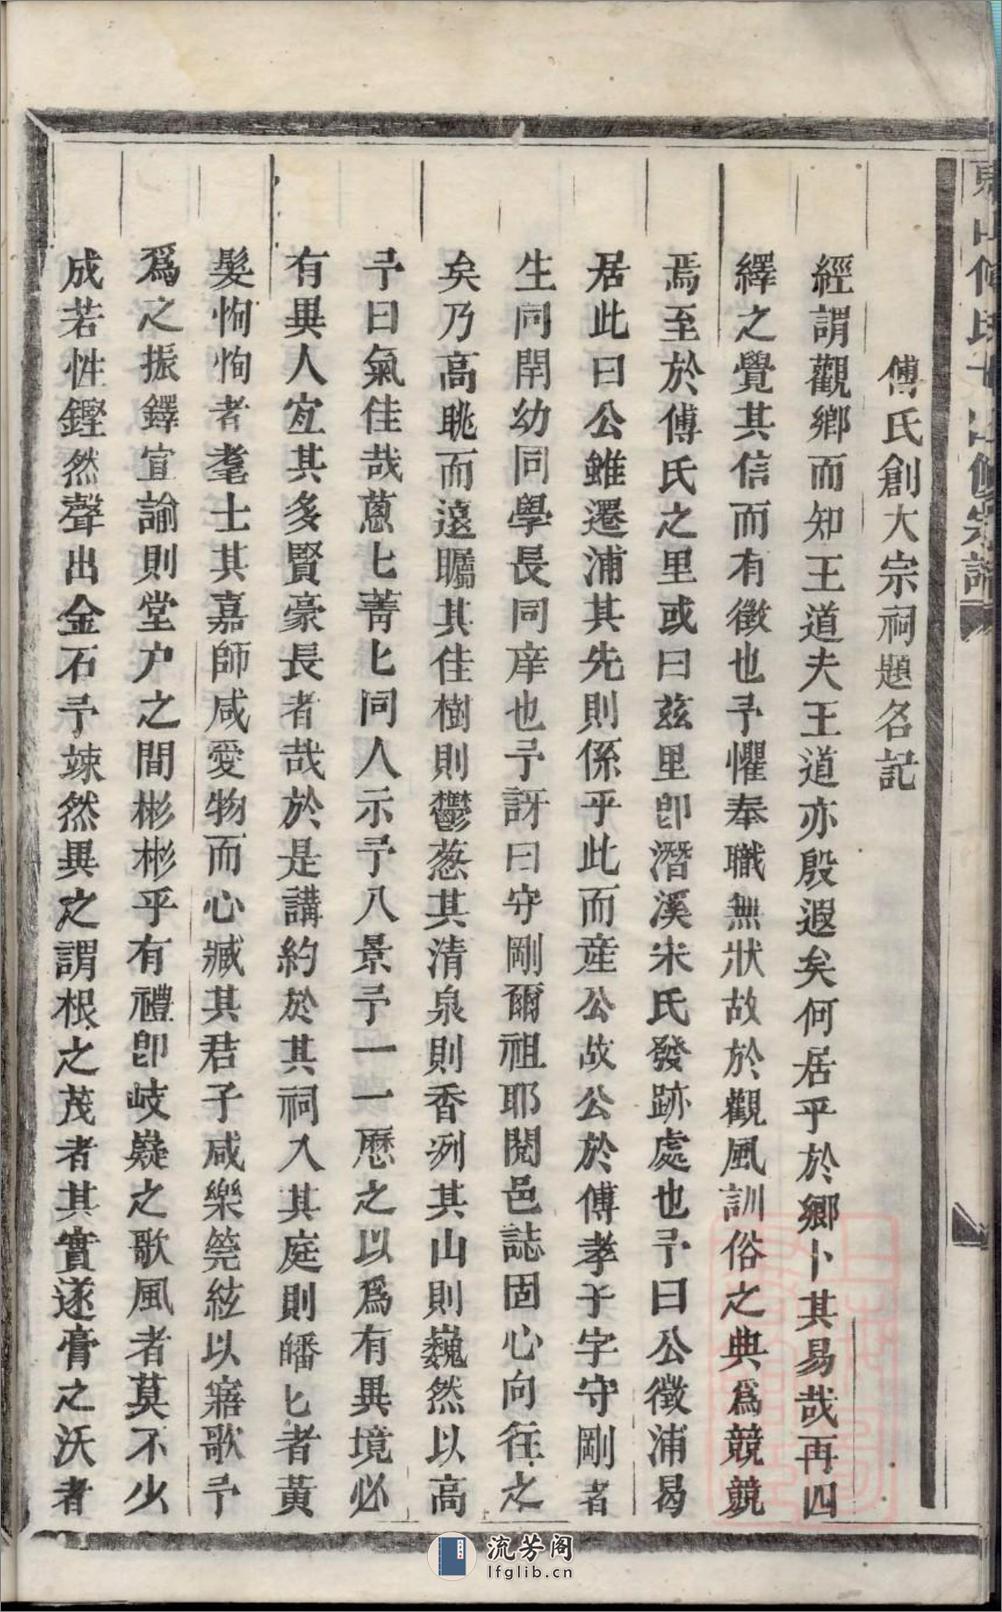 傅氏創大宗祠題名記
經謂觀鄉而知王道夫王道亦殷遐矣何居乎於鄉卜其易哉再四
繹之覺其信而有徵也予懼奉職無狀故於觀風訓俗之典爲競競
焉至於傅氏之里或曰玆里卽潛溪宋氏發跡處也予曰公徵浦曷
居此曰公雖遷浦其先則係乎此而産公故公於傅孝子字守剛者
生同閈幼同學長同庠也予訝曰守剛爾祖耶閱邑誌固心向往之
矣乃高眺而遠矚其佳樹則鬱葱其清泉則香冽其山則巍然以高
予曰氣佳哉蔥匕菁匕同人示予八景予一一歷之以爲有異境必
有異人宐其多賢豪長者哉於是講約於其祠入其庭則皤匕者黃
髮恂恂者耄士其嘉師咸愛物而心臧其君子咸樂筦絃以寤歌予
爲之振鐸宣諭則堂户之間彬彬乎有禮卽岐嶷之歌風者莫不少
成若性鏗然聲出金石予竦然異之謂根之茂者其實遂膏之沃者
流芳阁
lfglib.cn